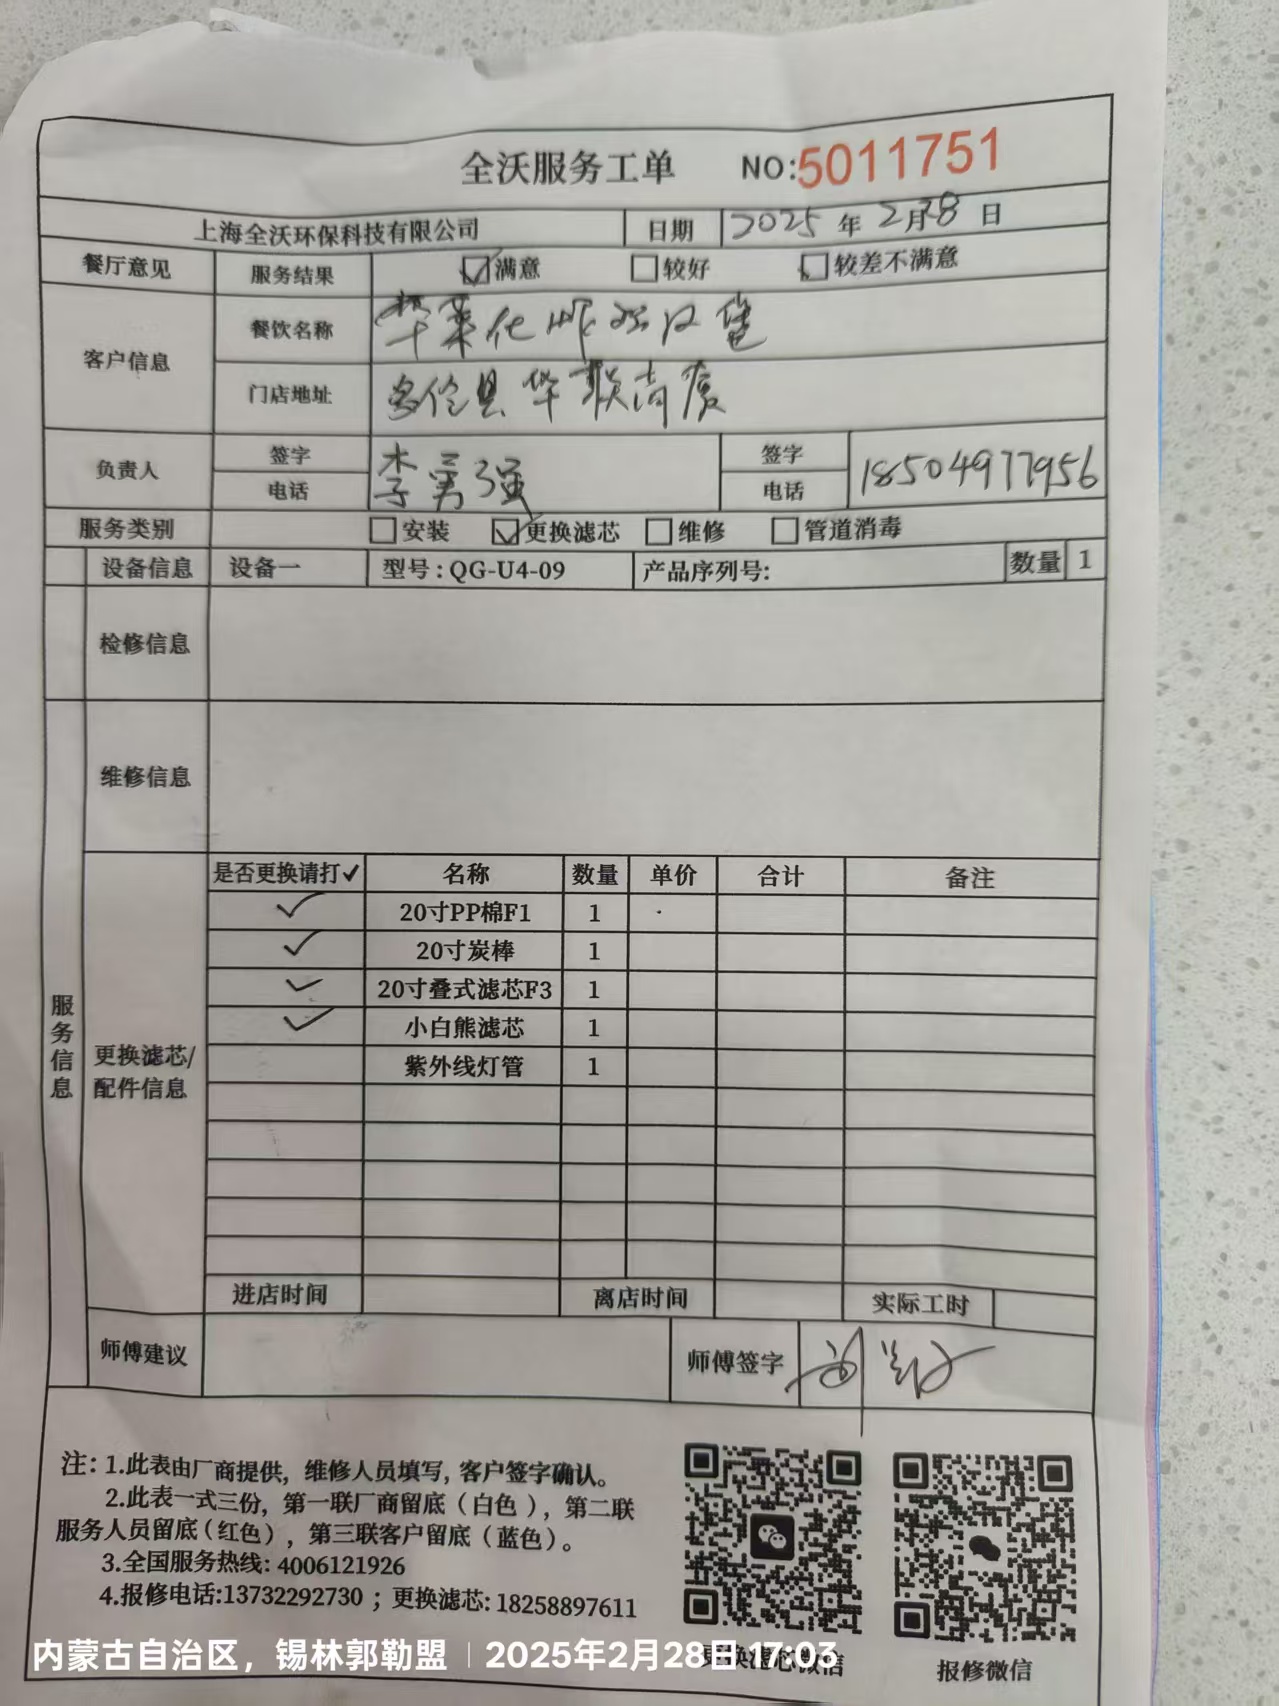 全沃服务工单 NO:5011751
上海全沃环保科技有限公司 日期 2025年2月28日
餐厅意见 服务结果 满意 较好 较差不满意
客户信息 餐饮名称 华莱化炸鸡汉堡
门店地址 多伦县华联尚度
负责人 签字 李勇强 签字
电话 电话 18504977956
服务类别 安装 更换滤芯 维修 管道消毒
设备信息 设备一 型号:QG-U4-09 产品序列号: 数量 1
检修信息
维修信息
服务信息
更换滤芯/配件信息
是否更换请打✓ 名称 数量 单价 合计 备注
✓ 20寸PP棉F1 1
✓ 20寸炭棒 1
✓ 20寸叠式滤芯F3 1
✓ 小白熊滤芯 1
紫外线灯管 1
进店时间 离店时间 实际工时
师傅建议 师傅签字
注:1.此表由厂商提供,维修人员填写,客户签字确认。
2.此表一式三份,第一联厂商留底(白色),第二联
服务人员留底(红色),第三联客户留底(蓝色)。
3.全国服务热线:4006121926
4.报修电话:13732292730;更换滤芯:18258897611
更换滤芯微信 报修微信
内蒙古自治区,锡林郭勒盟 2025年2月28日 17:03